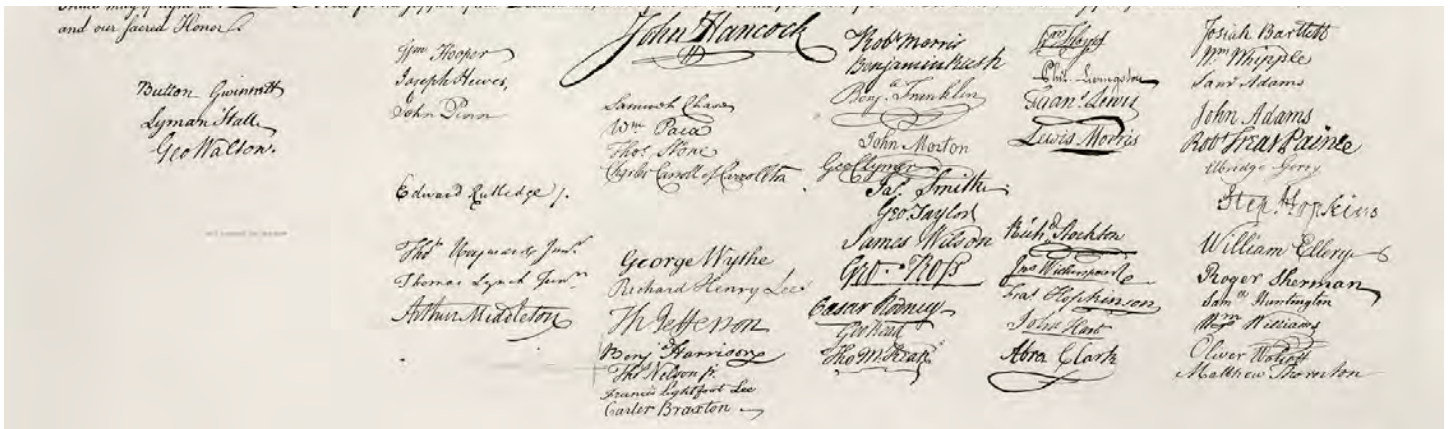 and our sacred Honor.
Button Gwinnett
Lyman Hall
Geo Walton.
Wm Hooper
Joseph Hewes,
John Penn
Edward Rutledge /.
Thos Heyward Junr.
Thomas Lynch Junr.
Arthur Middleton
John Hancock
Samuel Chase
Wm Paca
Thos Stone
Charles Carroll of Carrollton
George Wythe
Richard Henry Lee
Th Jefferson
Benj Harrison
Thos Nelson jr.
Francis Lightfoot Lee
Carter Braxton
Robt Morris
Benjamin Rush
Benja. Franklin
John Morton
Geo Clymer
Jas. Smith
Geo Taylor
James Wilson
Geo. Ross
Caesar Rodney
Geo Read
Tho M:Kean
Wm Floyd
Phil. Livingston
Frans. Lewis
Lewis Morris
Richd. Stockton
Jno Witherspoon
Fras. Hopkinson
John Hart
Abra Clark
Josiah Bartlett
Wm Whipple
Saml Adams
John Adams
Robt Treat Paine
Elbridge Gerry
Step. Hopkins
William Ellery
Roger Sherman
Saml Huntington
Wm Williams
Oliver Wolcott
Matthew Thornton